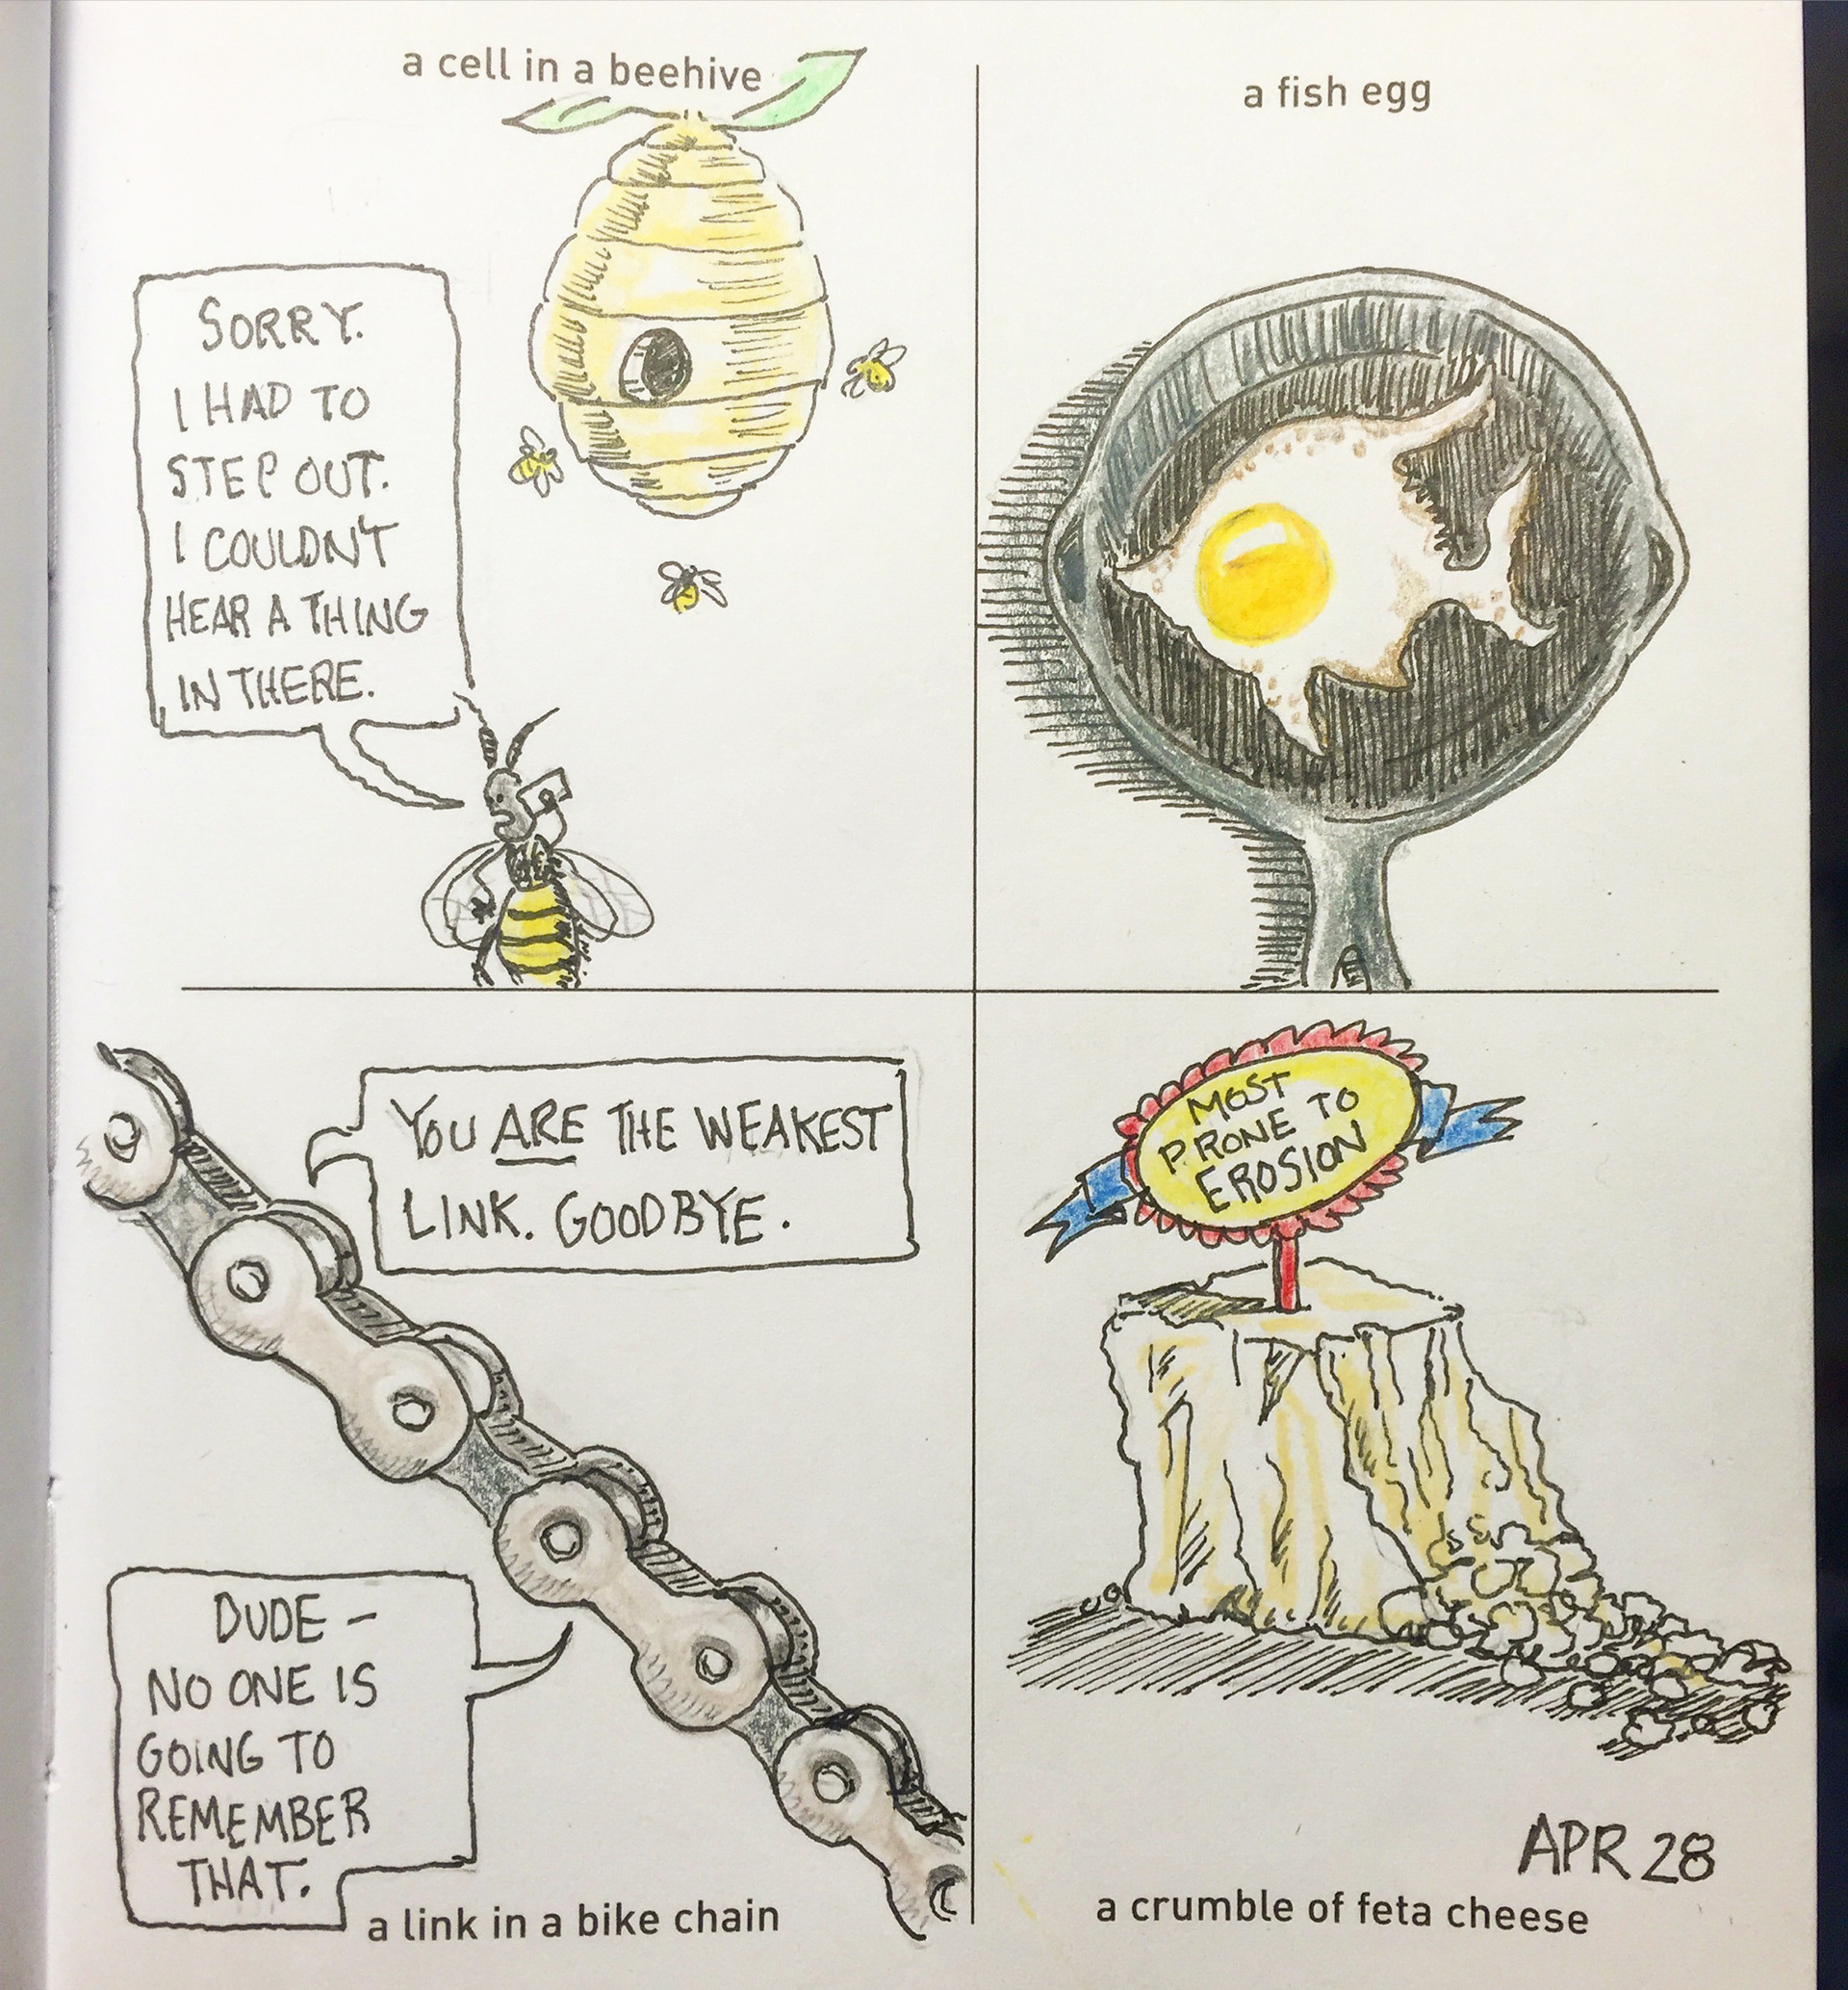 a cell in a beehive
SORRY.
I HAD TO
STEP OUT.
I COULDN'T
HEAR A THING
IN THERE.
a fish egg
YOU ARE THE WEAKEST
LINK. GOODBYE.
DUDE –
NO ONE IS
GOING TO
REMEMBER
THAT.
a link in a bike chain
MOST
PRONE TO
EROSION
APR 28
a crumble of feta cheese